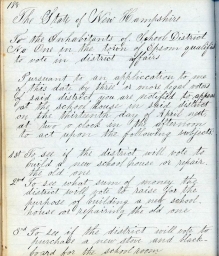 180
The State of New Hampshire
To the Inhabitants of School District
No One in the town of Epsom qualified
to vote in district affairs
Pursuant to an application to me
of this date by three or more legal voters
of said district you are notified to appear
at the school house in said district
on the thirteenth day of April next
at two o clock in the afternoon
to act upon the following subjects
1st To see if the district will vote to
build a new school house or repair
the old one
2nd To see what sum of money the
district will vote to raise for the
purpose of building a new school
house or repairing the old one
3rd To see if the district will vote to
purchase a new stove and black-
board for the school room